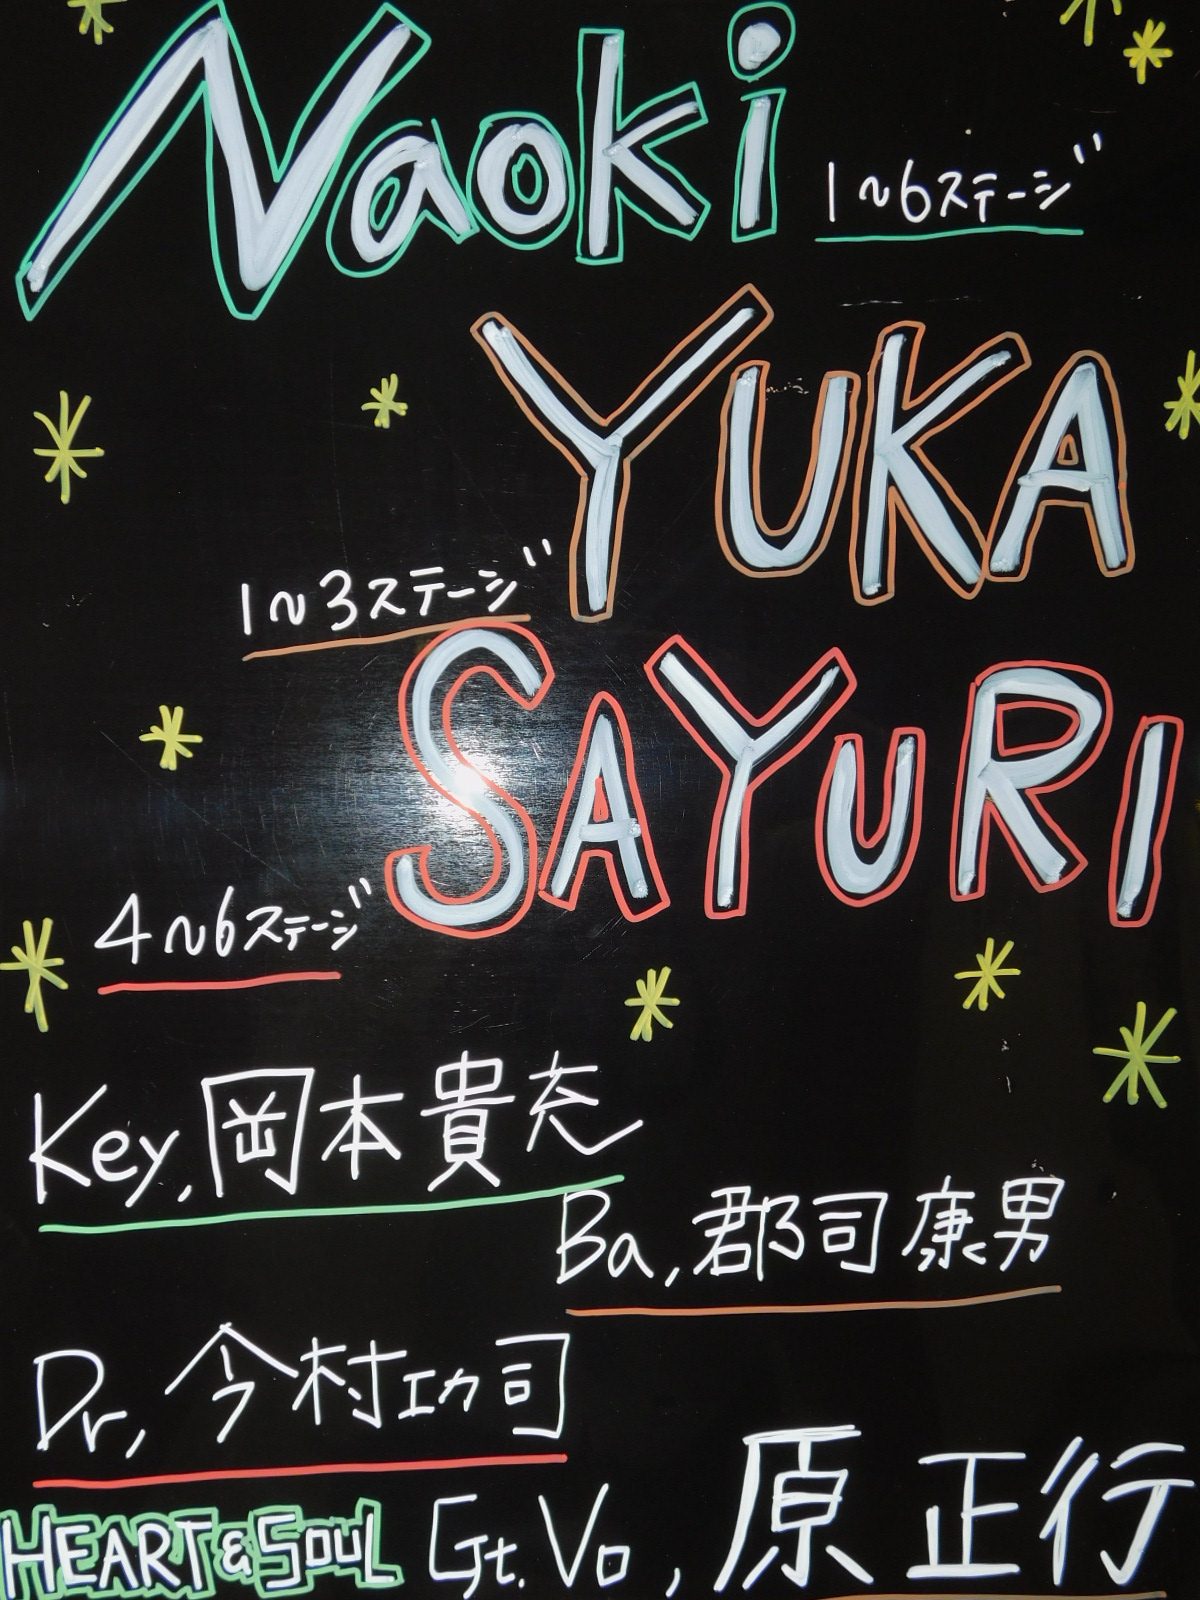 Naoki
1~6ステージ
YUKA
1~3ステージ
SAYURI
4~6ステージ
Key,岡本貴充
Ba,郡司康男
Dr,今村功司
HEART&SOUL Gt.Vo,原 正行